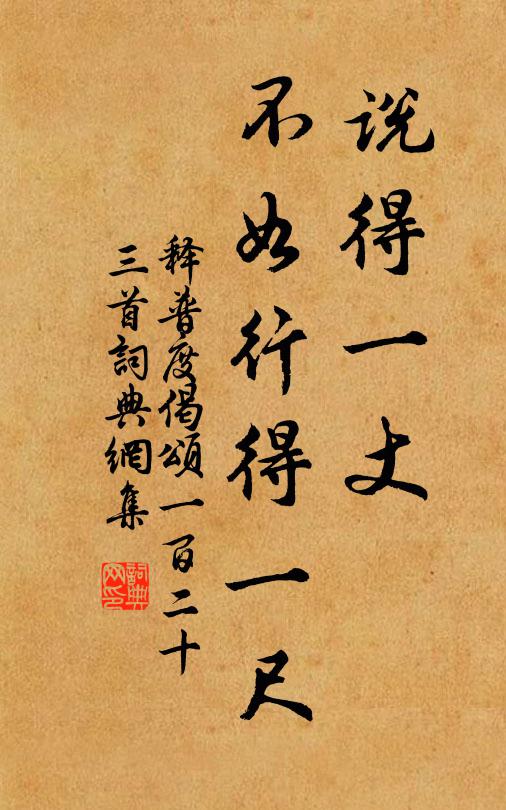 說得一丈
不如行得一尺
释普度偈頌一百二十
三首詞典網集
詞典网印